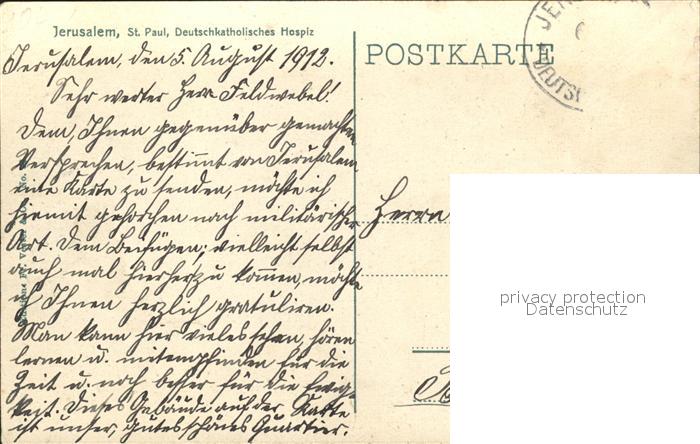 Jerusalem, St. Paul, Deutschkatholisches Hospiz
Jerusalem, den 5. August 1912.
Sehr werter Herr Feldwebel!
Dem, Ihnen gegenüber gemachten
Versprechen, bestimmt von Jerusalem
eine Karte zu senden, möchte ich
hiermit gehorchen nach militärischer
Art. Dem Beifügen; vielleicht selbst
auch mal hierher zu kommen, möchte
ich Ihnen herzlich gratuliren.
Man kann hier vieles sehen, hören
lernen u. mitempfinden für die
Zeit u. noch besser für die Ewig-
keit. Dieses Gebäude auf der Karte
ist unser, gutes schönes Quartier.
POSTKARTE
DEUTS
Herrn
privacy protection
Datenschutz